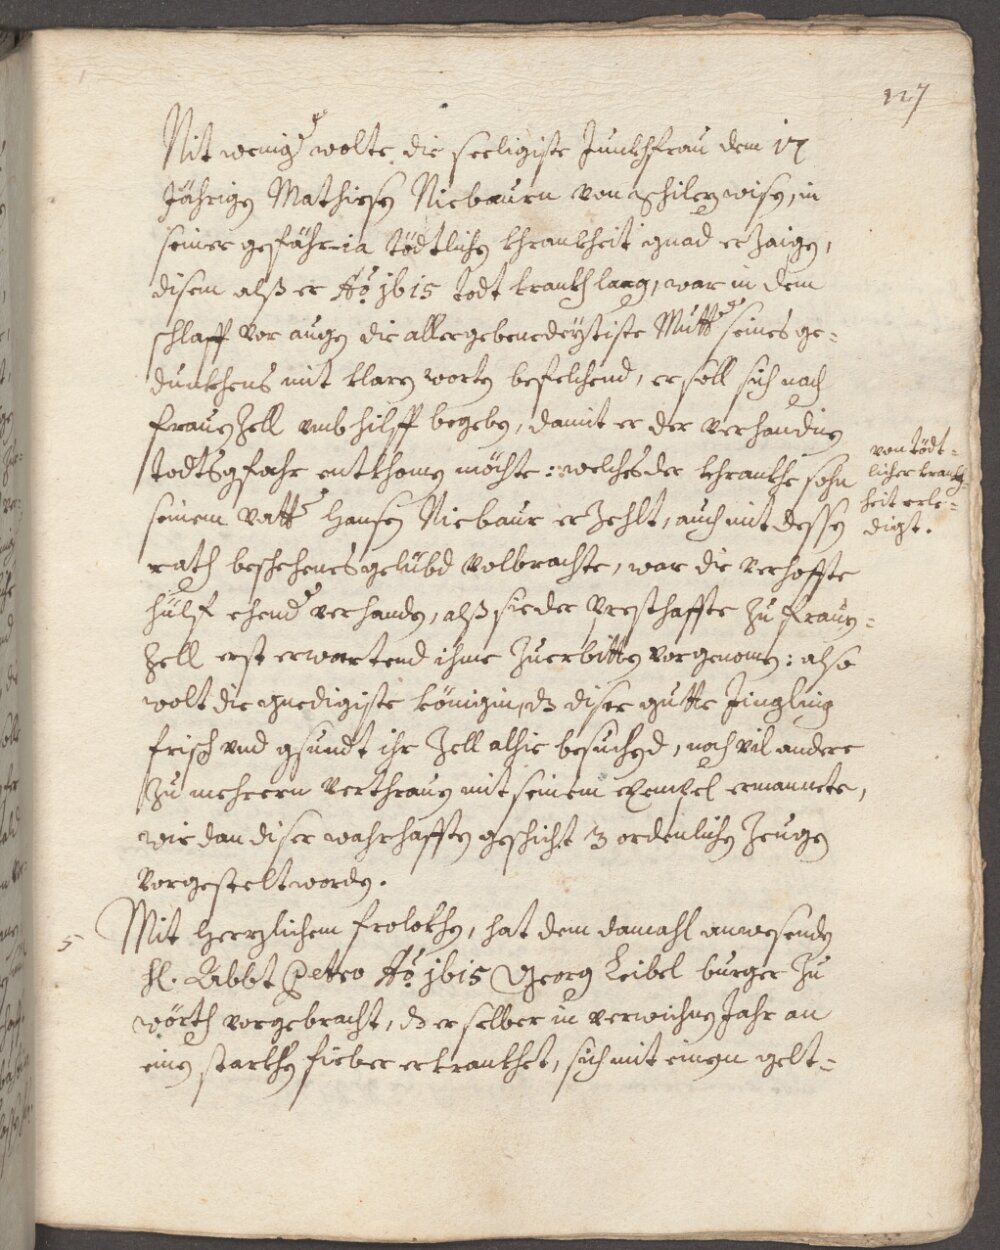 127
Nit weniger wolte die seeligiste Junkhfrau dem 17
Jährigen Mathiesen Niebaurn von Schilerwisen, in
seiner gefähr-ia tödtlichen khrankheit gnad erzaigen,
disem alß er Aõ 1615 todt krankh laag, war in dem
schlaff vor augen die allergebenedeÿtiste Mutter seines ge-
dunkhens mit klaren worten befelchend, er soll sich nach
frauenzell vmb hilff begeben, damit er der verhandnen
todtsgfahr entkhomen möchte: welches der khrankhe sohn
seinem vatter Hansen Niebaur erzehlt, auch mit dessen
rath beschehenes gelübd volbrachte, war die verhoffte
hülf ehender verhanden, alß sie der presthaffte zu frauen-
zell erst erwartend ihme zuerbitten vorgenomen: also
wolt die gnedigiste königin, dz diser gutte Jingling
frisch vnd gsundt ihr zell alhie besuchend, noch vil andere
zu mehrern verthrauen mit seinem exempel ermannete,
wie dan diser wahrhafften geschicht 3 ordenlichen zeugen
vorgestelt worden.
von tödt-
licher krankh-
heit erle-
digt.
5 Mit herzlichem frolokhen, hat dem damahl anwesenden
H. Abbt Petro Aõ 1615 Georg Leibel burger zu
wörth vorgebracht, dz er selber in verwichnen Jahr an
einen starkhen fieber erkrankhet, sich mit einem gelt-